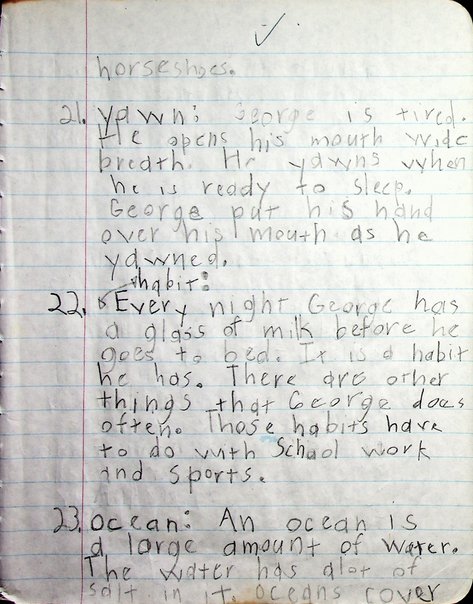 horseshoes.
21. yawn: George is tired.
He opens his mouth wide
breath. He yawns when
he is ready to sleep.
George put his hand
over his mouth as he
yawned.
habit:
22. Every night George has
a glass of milk before he
goes to bed. It is a habit
he has. There are other
things that George does
often. Those habits have
to do with School work
and sports.
23. ocean: An ocean is
a large amount of water.
The water has alot of
salt in it. oceans cover